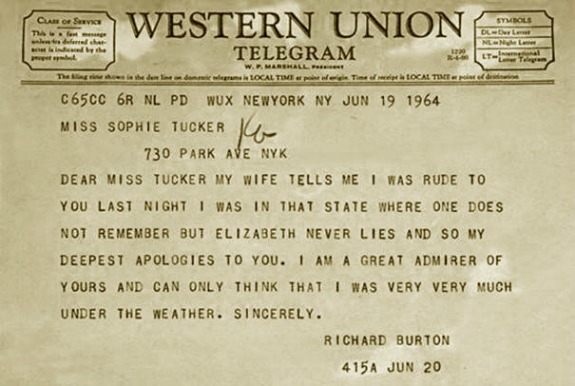 CLASS OF SERVICE
This is a fast message
unless its deferred char-
acter is indicated by the
proper symbol.
WESTERN UNION
TELEGRAM
W. P. MARSHALL, PRESIDENT
1220
SYMBOLS
DL=Day Letter
NL=Night Letter
LT=International Letter Telegram
The filing time shown in the date line on domestic telegrams is LOCAL TIME at point of origin. Time of receipt is LOCAL TIME at point of destination
C65CC 6R NL PD WUX NEWYORK NY JUN 19 1964
MISS SOPHIE TUCKER
730 PARK AVE NYK
DEAR MISS TUCKER MY WIFE TELLS ME I WAS RUDE TO
YOU LAST NIGHT I WAS IN THAT STATE WHERE ONE DOES
NOT REMEMBER BUT ELIZABETH NEVER LIES AND SO MY
DEEPEST APOLOGIES TO YOU. I AM A GREAT ADMIRER OF
YOURS AND CAN ONLY THINK THAT I WAS VERY VERY MUCH
UNDER THE WEATHER. SINCERELY.
RICHARD BURTON
415A JUN 20